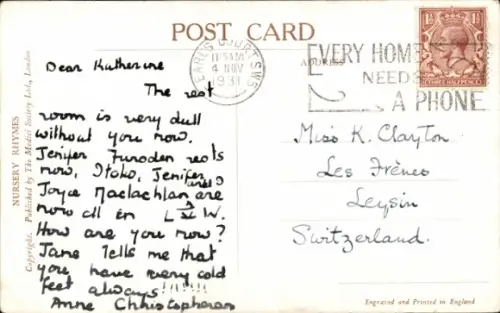 POST CARD
ADDRESS
EARL'S COURT. S.W.5
11.15 AM
4 NOV
1931
EVERY HOME
NEEDS
A PHONE
THREE HALFPENCE
NURSERY RHYMES
Copyright. Published by The Medici Society Ltd., London
Dear Katherine
The rest
room is very dull
without you now.
Jenifer rests
now, Jenifer
Joyce Maclachlan are
now all in W.
How are you now?
Jane Tells me that
you have very cold
feet always!!!!!!
Anne Christopherson
Miss K. Clayton
Les Frênes
Leysin
Switzerland.
Engraved and Printed in England